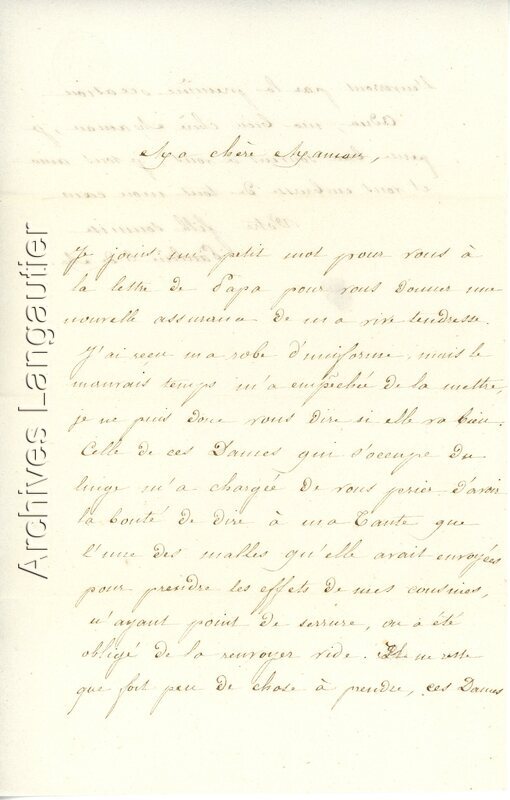 Ma chère Maman,
Je joins un petit mot pour vous à
la lettre de Papa pour vous donner une
nouvelle assurance de ma vive tendresse.
J'ai reçu ma robe d'uniforme, mais le
mauvais temps m'a empêchée de la mettre,
je ne puis donc vous dire si elle va bien.
Celle de ces Dames qui s'occupe du
linge m'a chargée de vous prier d'avoir
la bonté de dire à ma Tante que
l'une des malles qu'elle avait envoyées
pour prendre les effets de mes cousines,
n'ayant point de serrure, on a été
obligé de la renvoyer vide. Il ne reste
que fort peu de chose à prendre, ces Dames
Archives Langautier